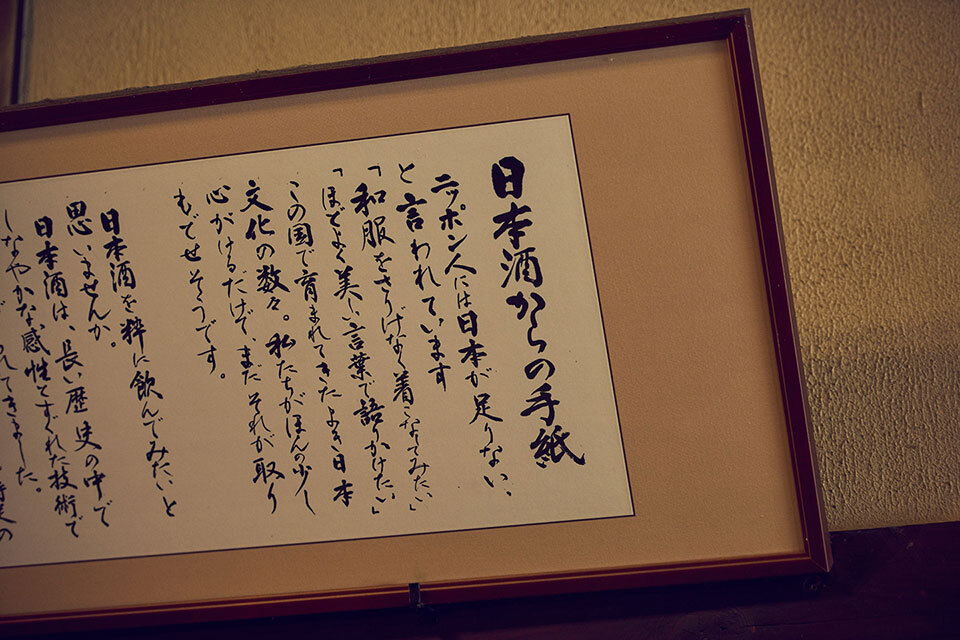 日本酒からの手紙
ニッポン人には日本が足りない、
と言われています
「和服をさりげなく着こなしてみたい」
「ほどよく美しい言葉で語りかけたい」
この国で育まれてきたよき日本
文化の数々。私たちがほんの少し
心がけるだけで、まだそれが取り
もどせそうです。
日本酒を粋に飲んでみたいと
思いませんか。
日本酒は、長い歴史の中で
しなやかな感性とすぐれた技術で
れてきました。